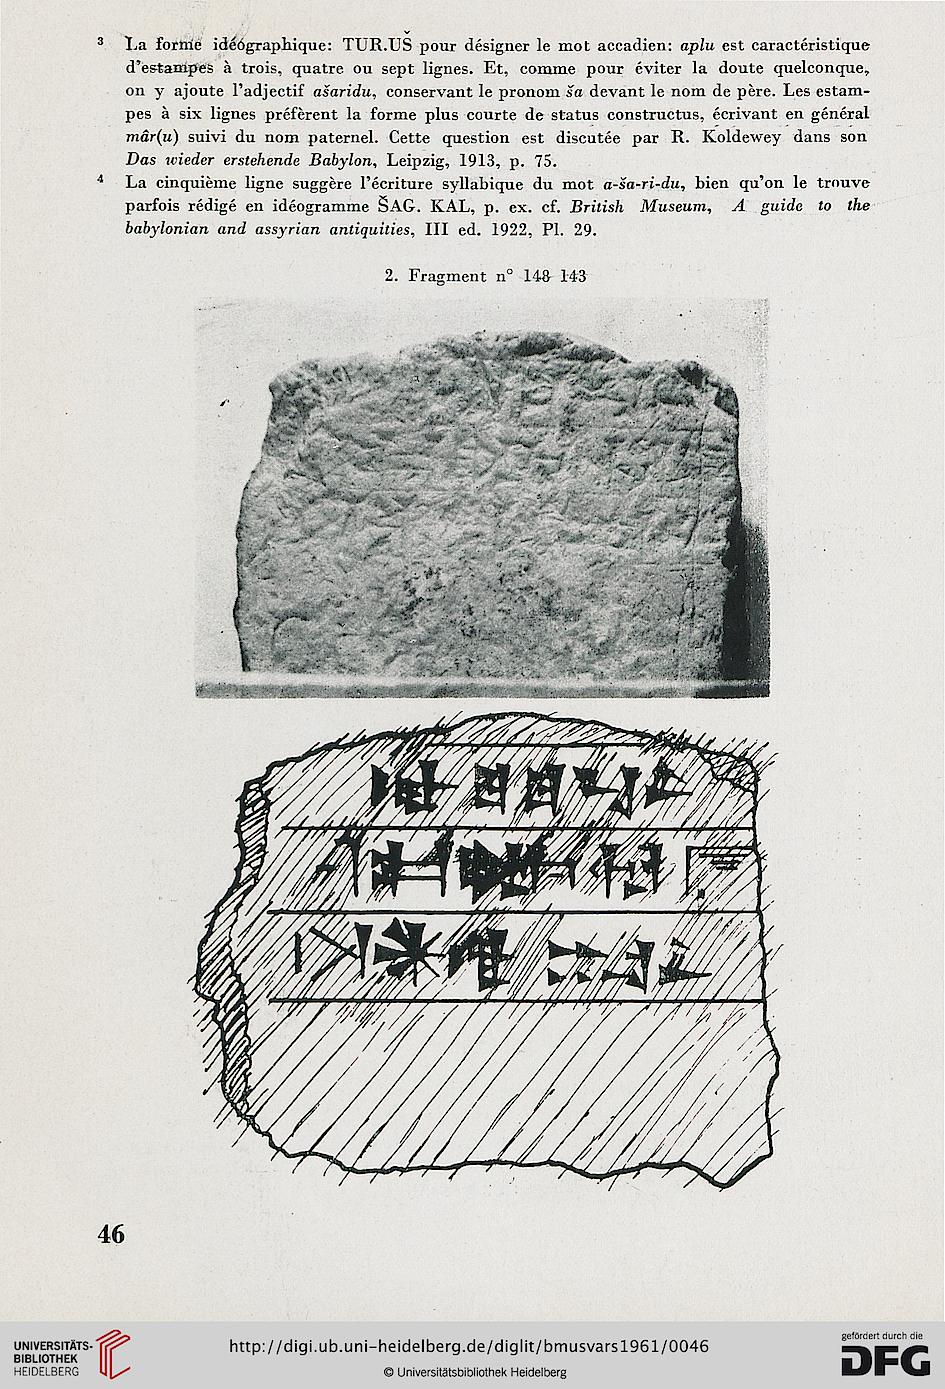 ³ La forme idéographique: TUR.UŠ pour désigner le mot accadien: aplu est caractéristique
d'estampes à trois, quatre ou sept lignes. Et, comme pour éviter la doute quelconque,
on y ajoute l'adjectif ašaridu, conservant le pronom ša devant le nom de père. Les estam-
pes à six lignes préfèrent la forme plus courte de status constructus, écrivant en général
mâr(u) suivi du nom paternel. Cette question est discutée par R. Koldewey dans son
Das wieder erstehende Babylon, Leipzig, 1913, p. 75.
⁴ La cinquième ligne suggère l'écriture syllabique du mot a-ša-ri-du, bien qu'on le trouve
parfois rédigé en idéogramme ŠAG. KAL, p. ex. cf. British Museum, A guide to the
babylonian and assyrian antiquities, III ed. 1922, Pl. 29.
2. Fragment n° 148 143
46
UNIVERSITÄTS-
BIBLIOTHEK
HEIDELBERG
http://digi.ub.uni-heidelberg.de/diglit/bmusvars1961/0046
© Universitätsbibliothek Heidelberg
gefördert durch die
DFG